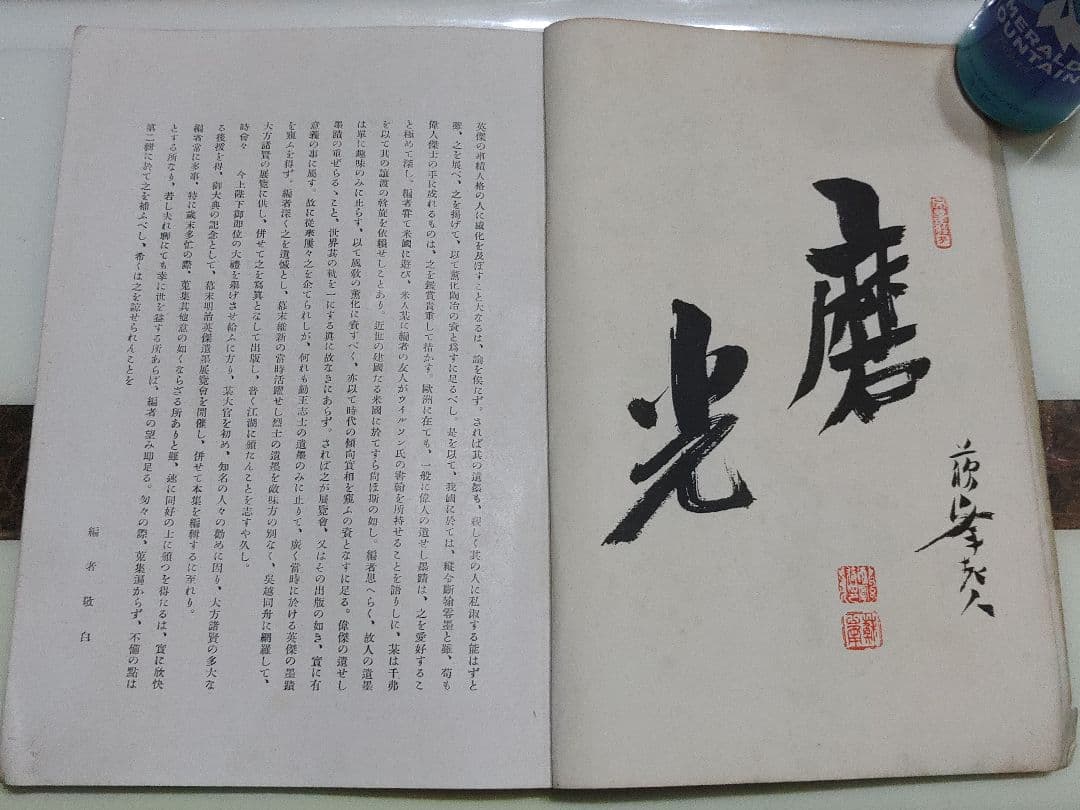 磨
光
英傑の事積人格の人に感化を及ぼすこと大なるは、論を俟たず。されば其の遺墨も、親しく其の人に私淑する能はずと
雖、之を展べ、之を揭げて、以て薫化陶冶の資と爲すに足るべし。是を以て、我國に於ては、縱令斷翰零墨と雖、苟も
偉人傑士の手に成れるものは、之を鑑賞貴重して措かず。歐洲に在ても、一般に偉人の遺せし墨蹟は、之を愛好するこ
と極めて深し。編者甞て米國に遊び、米人某に編者の友人がウイルソン氏の書翰を所持せることを語りしに、某は千弗
を以て其の讓渡の斡旋を依賴せしことあり。近世の建國たる米國に於てすら尙ほ斯の如し。編者思へらく、故人の遺墨
は單に趣味のみに止らず、以て風敎の薫化に資すべく、亦以て時代の傾向實相を窺ふの資となすに足る。偉傑の遺せし
墨蹟の重ぜらるゝこと、世界其の軌を一にする眞に故なきにあらず。されば之が展覽會、又はその出版の如き、實に有
意義の事に屬す。故に從來屢々之を企てられしが、何れも勤王志士の遺墨のみに止りて、廣く當時に於ける英傑の墨蹟
を窺ふを得ず。編者深く之を遺憾とし、幕末維新の當時活躍せし烈士の遺墨を敵味方の別なく、吳越同舟に網羅して、
大方諸賢の展覽に供し、併せて之を寫眞となして出版し、普く江湖に頒たんことを志すや久し。
時會々　今上陛下御卽位の大禮を擧げさせ給ふに方り、某大官を初め、知名の人々の勸めに因り、大方諸賢の多大な
る後援を得、御大典の記念として、幕末明治英傑遺墨展覽會を開催し、併せて本集を編輯するに至れり。
編者常に多事、特に歲末多忙の際、蒐集其他意の如くならざる所ありと雖、速に同好の士に頒つを得たるは、實に欣快
とする所なり、若し夫れ聊にても幸に世を益する所あらば、編者の望み卽足る。匆々の際、蒐集漏からず、不備の點は
第二輯に於て之を補ふべし、希くは之を諒せられんことを
編者敬白
EMERALD
MOUNTAIN